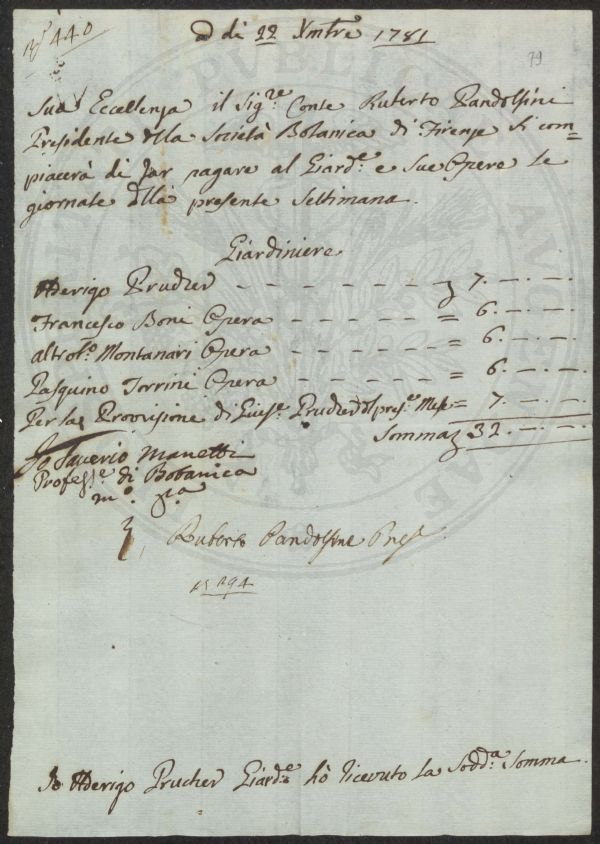 N.º 440
A dì 22 Xmbre 1781
79
Sua Eccellenza il Sig.re Conte Ruberto Pandolfini
Presidente della Società Botanica di Firenze si com=
piacerà di far pagare al Giard.e e sue Opere le
giornate della presente Settimana.
Giardiniere
Aderigo Prucher - - - - - - - - 7. — . — .
Francesco Boni Opera - - - - - = 6. — . — .
altro lº Montanari Opera - - - - - = 6. — . — .
Pasquino Torrini Opera - - - - - = 6. — . — .
Per la Provvisione di Guis.e Prucher del pres.e Mese = 7. — . — .
Somma 32. — . — .
Io Saverio Manetti
Profess.e di Botanica
m.º p.a
Ruberto Pandolfini Pres.
294
Io Aderigo Prucher Giard.e hò ricevuto la Sodd.a Somma.